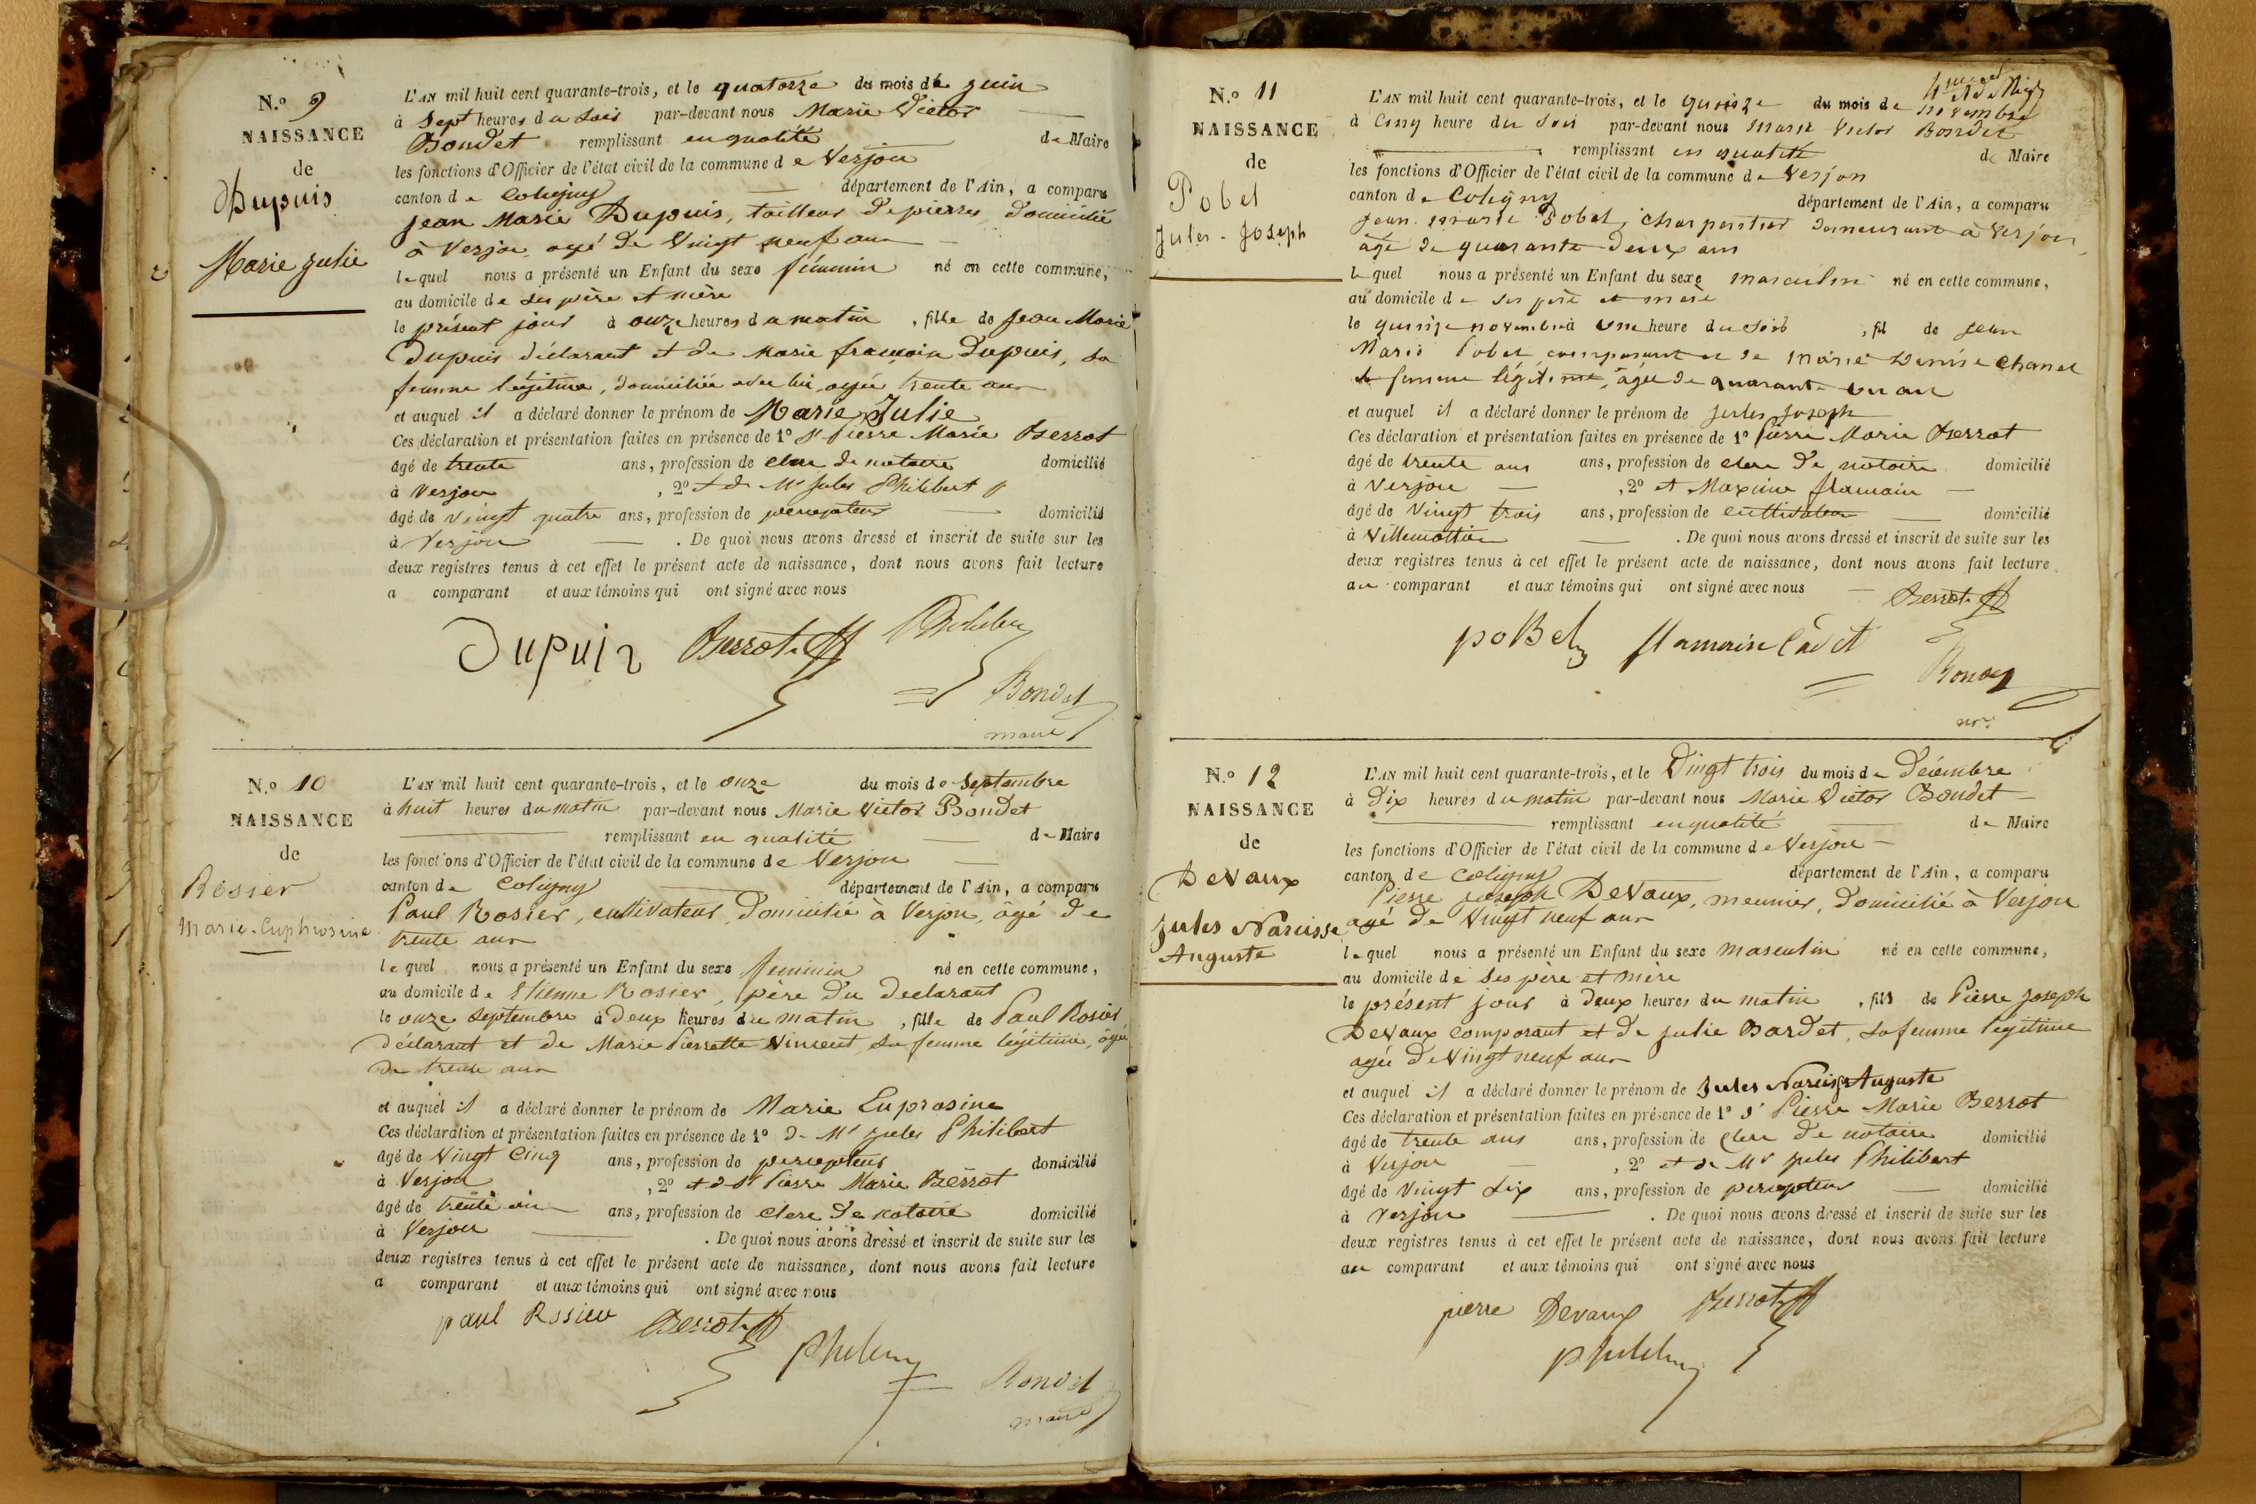 N.º 9
NAISSANCE
de
Dupuis
Marie Julie
L'AN mil huit cent quarante-trois, et le quatorze du mois de juin
à Sept heures du soir par-devant nous Marie Victor
Bondet remplissant en qualité de Maire
les fonctions d'Officier de l'état civil de la commune de Verjon
canton de Coligny département de l'Ain, a comparu
Jean Marie Dupuis, tailleur de pierres, domicilié
à Verjon, agé de Vingt neuf ans
lequel nous a présenté un Enfant du sexe féminin né en cette commune,
au domicile de ses père et mère
le présent jour à onze heures du matin, fille de Jean Marie
Dupuis déclarant et de Marie françoise Dupuis, sa
femme légitime, domiciliée avec lui, agée trente ans
et auquel il a déclaré donner le prénom de Marie Julie
Ces déclaration et présentation faites en présence de 1º Sr Pierre Marie Berrot
âgé de trente ans, profession de clerc de notaire domicilié
à Verjon, 2º et de Mr Jules Philibert
âgé de vingt quatre ans, profession de percepteur domicilié
à Verjon . De quoi nous avons dressé et inscrit de suite sur les
deux registres tenus à cet effet le présent acte de naissance, dont nous avons fait lecture
a comparant et aux témoins qui ont signé avec nous
Dupuis Berrot Philibert
Bondet
maire
N.º 10
NAISSANCE
de
Rosier
Marie-Euphrosine
L'AN mil huit cent quarante-trois, et le onze du mois de Septembre
à huit heures du matin par-devant nous Marie Victor Bondet
remplissant en qualité de Maire
les fonctions d'Officier de l'état civil de la commune de Verjon
canton de Coligny département de l'Ain, a comparu
Paul Rosier, cultivateur, domicilié à Verjon, âgé de
trente ans
lequel nous a présenté un Enfant du sexe feminin né en cette commune,
au domicile de Etienne Rosier, père du declarant
le onze septembre à deux heures du matin, fille de Paul Rosier
déclarant et de Marie Pierrette Vincent, sa femme légitime, âgée
de trente ans
et auquel il a déclaré donner le prénom de Marie Euprosine
Ces déclaration et présentation faites en présence de 1º de Mr Jules Philibert
âgé de Vingt Cinq ans, profession de percepteur domicilié
à Verjon, 2º et de Sr Pierre Marie Berrot
âgé de trente ans, profession de clerc de notaire domicilié
à Verjon . De quoi nous avons dressé et inscrit de suite sur les
deux registres tenus à cet effet le présent acte de naissance, dont nous avons fait lecture
a comparant et aux témoins qui ont signé avec nous
paul Rosier Berrot
Philibert
Bondet
maire
N.º 11
NAISSANCE
de
Pobel
Jules-Joseph
L'AN mil huit cent quarante-trois, et le quinze du mois de novembre
à Cinq heure du soir par-devant nous Marie Victor Bondet
remplissant en qualité de Maire
les fonctions d'Officier de l'état civil de la commune de Verjon
canton de Coligny département de l'Ain, a comparu
Jean-marie Pobel, charpentier demeurant à Verjon
âgé de quarante deux ans
lequel nous a présenté un Enfant du sexe masculin né en cette commune,
au domicile de ses père et mère
le quinze novembre à une heure du soir, fil de Jean
Marie Pobel comparant et de Marie Denise Chanel
sa femme légitime, âgée de quarante un an
et auquel il a déclaré donner le prénom de Jules Joseph
Ces déclaration et présentation faites en présence de 1º Pierre Marie Berrot
âgé de trente ans ans, profession de clerc de notaire domicilié
à Verjon, 2º et Maxime flamain
âgé de Vingt trois ans, profession de cultivateur domicilié
à Villemottier . De quoi nous avons dressé et inscrit de suite sur les
deux registres tenus à cet effet le présent acte de naissance, dont nous avons fait lecture
au comparant et aux témoins qui ont signé avec nous
Berrot
poBel flamain Cadet
Bondet
N.º 12
NAISSANCE
de
DeVaux
Jules Narcisse
Auguste
L'AN mil huit cent quarante-trois, et le Vingt trois du mois de Décembre
à Dix heures du matin par-devant nous Marie Victor Bondet
remplissant en qualité de Maire
les fonctions d'Officier de l'état civil de la commune de Verjon
canton de Coligny département de l'Ain, a comparu
Pierre Joseph DeVaux, meunier, domicilié à Verjon
agé de Vingt neuf ans
lequel nous a présenté un Enfant du sexe masculin né en cette commune,
au domicile de ses père et mère
le présent jour à deux heures du matin, fils de Pierre Joseph
DeVaux comparant et de Julie Bardet, sa femme légitime
agée de Vingt neuf ans
et auquel il a déclaré donner le prénom de Jules Narcisse Auguste
Ces déclaration et présentation faites en présence de 1º Sr Pierre Marie Berrot
âgé de trente ans ans, profession de clerc de notaire domicilié
à Verjon, 2º et de Mr Jules Philibert
âgé de Vingt Six ans, profession de percepteur domicilié
à Verjon . De quoi nous avons dressé et inscrit de suite sur les
deux registres tenus à cet effet le présent acte de naissance, dont nous avons fait lecture
au comparant et aux témoins qui ont signé avec nous
pierre Devaux Berrot
Philibert